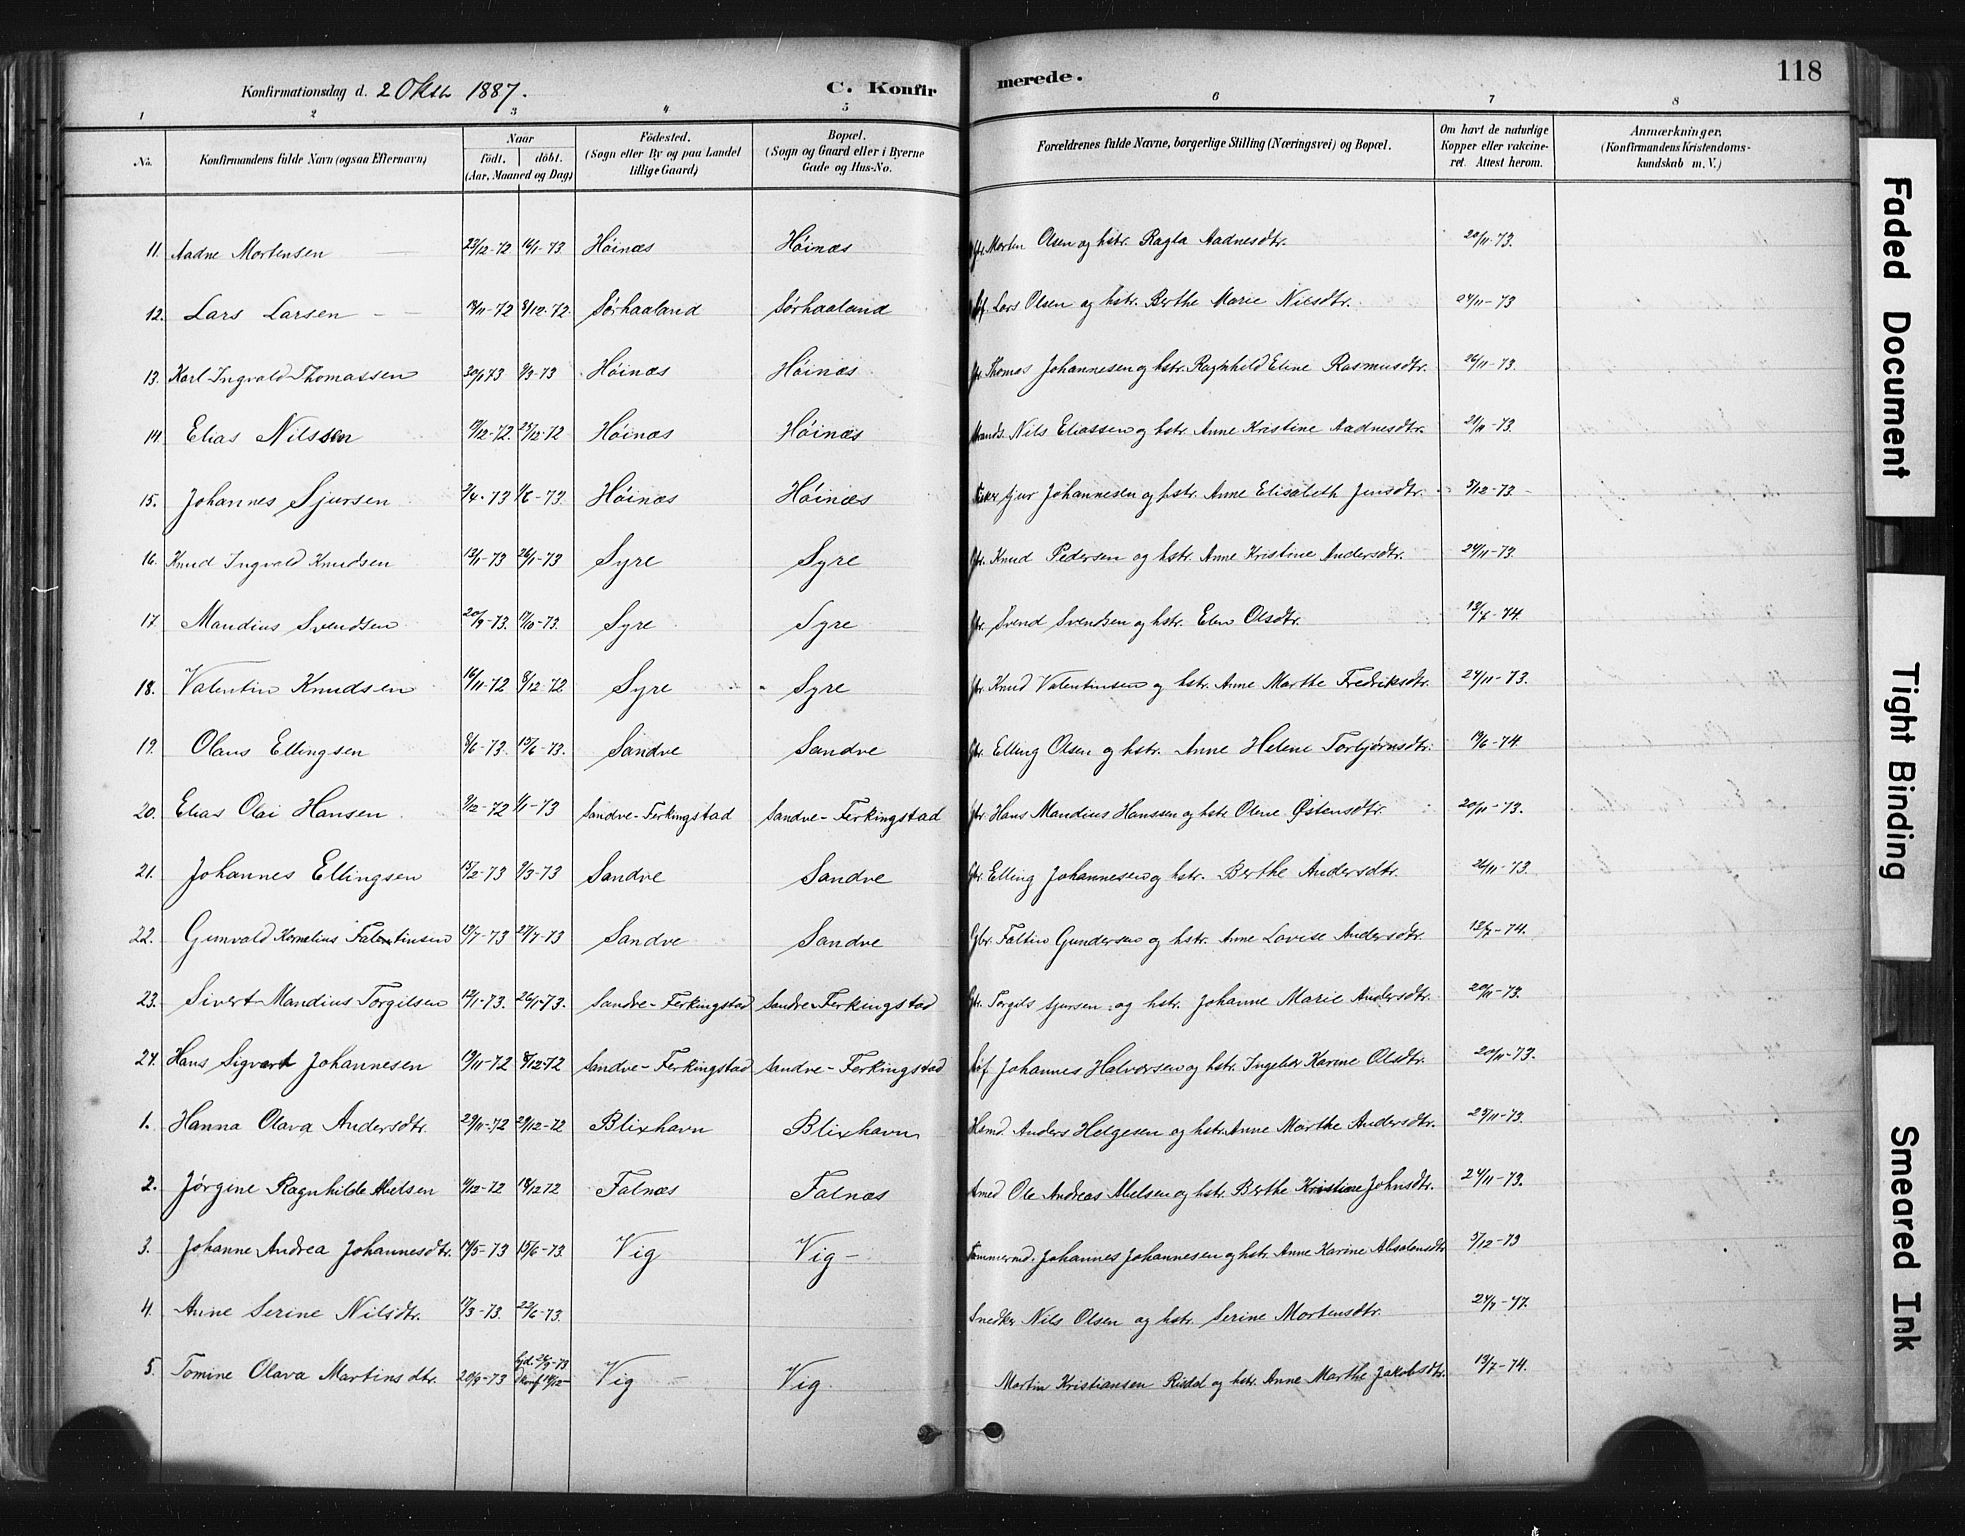 Konfirmationsdag d. 2 Oktb 1887. C. Konfir merede. 118
1 2 3 4 5 6 7 8
No. Konfirmandens fulde Navn (ogsaa Efternavn) Naar født. døbt. (Aar, Maaned og Dag) Fødested. (Sogn eller By og paa Landet tillige Gaard) Bopæl. (Sogn og Gaard eller i Byerne Gade og Hus-No. Forældrenes fulde Navne, borgerlige Stilling (Næringsvei) og Bopæl. Om havt de naturlige Kopper eller vakcineret. Attest herom. Anmærkninger. (Konfirmandens Kristendomskundskab m. V.)
11. Aadne Mortensen 22/12-72 16/1-73 Høinæs Høinæs Gbr. Morten Olsen og hstr. Ragla Aadnesdtr. 20/11-73.
12. Lars Larsen 8/12-72 Sørhaaland Sørhaaland Lars Olsen og hstr. Berthe Marie Nilsdtr. 24/11-73
13. Karl Ingvald Thomassen 30/1 73 9/3-73 Høinæs Høinæs Gbr. Thomas Johannesen og hstr. Ragnhild Eline Rasmusdtr. 26/11-73.
14 Elias Nilssen 29/12-72 Høinæs Høinæs Strands. Nils Eliassen og hstr. Anne Kristine Aadnesdtr. 21/11-73.
15. Johannes Sjursen 2/4-73 1/6-73. Høinæs Høinæs Sjur Johannesen og hstr. Anne Elisabeth Jensdtr. 3/12-73
16. Knud Ingvald Knudsen 12/1-73 26/1-73 Syre Syre Gbr. Knud Pedersen og hstr. Anne Kristine Andersdtr. 24/11-73.
17. Mandius Svendsen 20/9-73. Syre Syre Gbr. Svend Svendsen og hstr. Elen Olsdtr. 13/7-74.
18. Valentin Knudsen 16/11-72 8/12-72 Syre Syre Gbr. Knud Valentinsen og hstr. Anne Marthe Fredriksdtr. 24/11-73.
19. Olaus Ellingsen 8/6-73. 15/6-73. Sandve Sandve Gbr. Elling Olsen og hstr. Anne Helene Torbjørnsdtr. 19/6-74.
20. Elias Olai Hansen 9/12-72 1/1-73 Sandve-Ferkingstad Sandve-Ferkingstad Gbr. Hans Mandius Hanssen og hstr Oline Østensdtr. 20/11-73.
21. Johannes Ellingsen 15/2-73 9/3-73 Sandve Sandve Gbr. Elling Johannesen og hstr. Berthe Andersdtr. 26/11-73.
22. Gunvald Kornelius Falentinsen 27/7-73 Sandve Sandve Gbr. Faltin Gundersen og hstr. Anne Lovise Andersdtr. 12/7-74.
23. Sivert Mandius Torgilsen 12/1-73. 26/1-73. Sandve-Ferkingstad Sandve-Ferkingstad Gbr. Torgils Sjursen og hstr. Johanne Marie Andersdtr. 20/11-73.
24. Hans Sigvart Johannesen 19/11-72 8/12-72 Sandve-Ferkingstad Sandve-Ferkingstad Johannes Halvorsen og hstr. Ingebor Karine Olsdtr. 20/11-73.
1. Hanna Olava Andersdtr. 29/11-72 29/12-72 Blixhavn Blixhavn Husmd. Anders Helgesen og hstr. Anne Marthe Andersdtr. 23/11-73.
2. Jørgine Ragnhilde Abelsen Falnæs Falnæs Ole Andreas Abelsen og hstr. Berthe Kristine Johnsdtr. 24/11-73.
3. Johanne Andrea Johannesdtr. 15/6-73. Vig Vig Tømmermd. Johannes Johannesen og hstr. Anne Karine Absalonsdtr 3/12-73
4. Anne Serine Nilsdtr. 17/3-73. 22/6-73. Snedker Nils Olsen og hstr. Serine Mortensdtr.
5. Tomine Olava Martinsdtr. 20/9-73 Vig Vig. Martin Kristiansen og hstr. Anne Marthe Jakobsdtr. 13/7-74.
Faded Document
Tight Binding
Smeared Ink